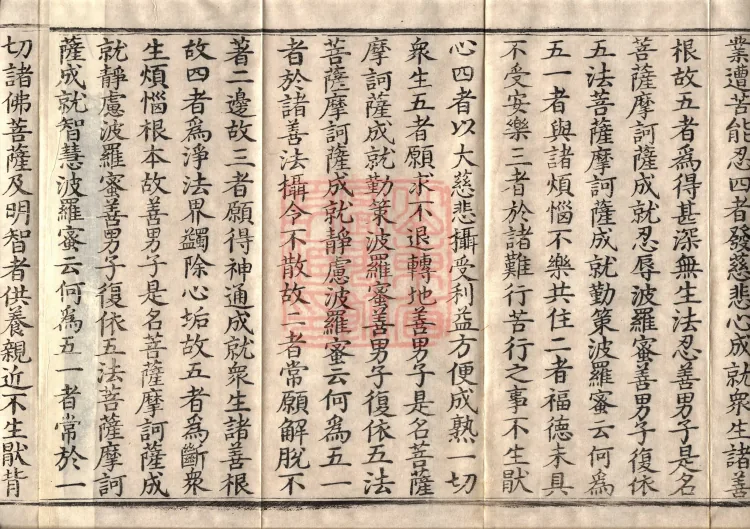 業遭苦能忍四者發慈悲心成就衆生諸善
根故五者為得甚深無生法忍善男子是名
菩薩摩訶薩成就忍辱波羅蜜善男子復依
五法菩薩摩訶薩成就勤策波羅蜜云何為
五一者與諸煩惱不樂共住二者福德未具
不受安樂三者於諸難行苦行之事不生猒
心四者以大慈悲攝受利益方便成熟一切
衆生五者願求不退轉地善男子是名菩薩
摩訶薩成就勤策波羅蜜善男子復依五法
菩薩摩訶薩成就靜慮波羅蜜云何為五一
者於諸善法攝令不散故二者常願解脫不
著二邊故三者願得神通成就衆生諸善根
故四者為淨法界蠲除心垢故五者為斷衆
生煩惱根本故善男子是名菩薩摩訶薩成
就靜慮波羅蜜善男子復依五法菩薩摩訶
薩成就智慧波羅蜜云何為五一者常於一
切諸佛菩薩及明智者供養親近不生猒背